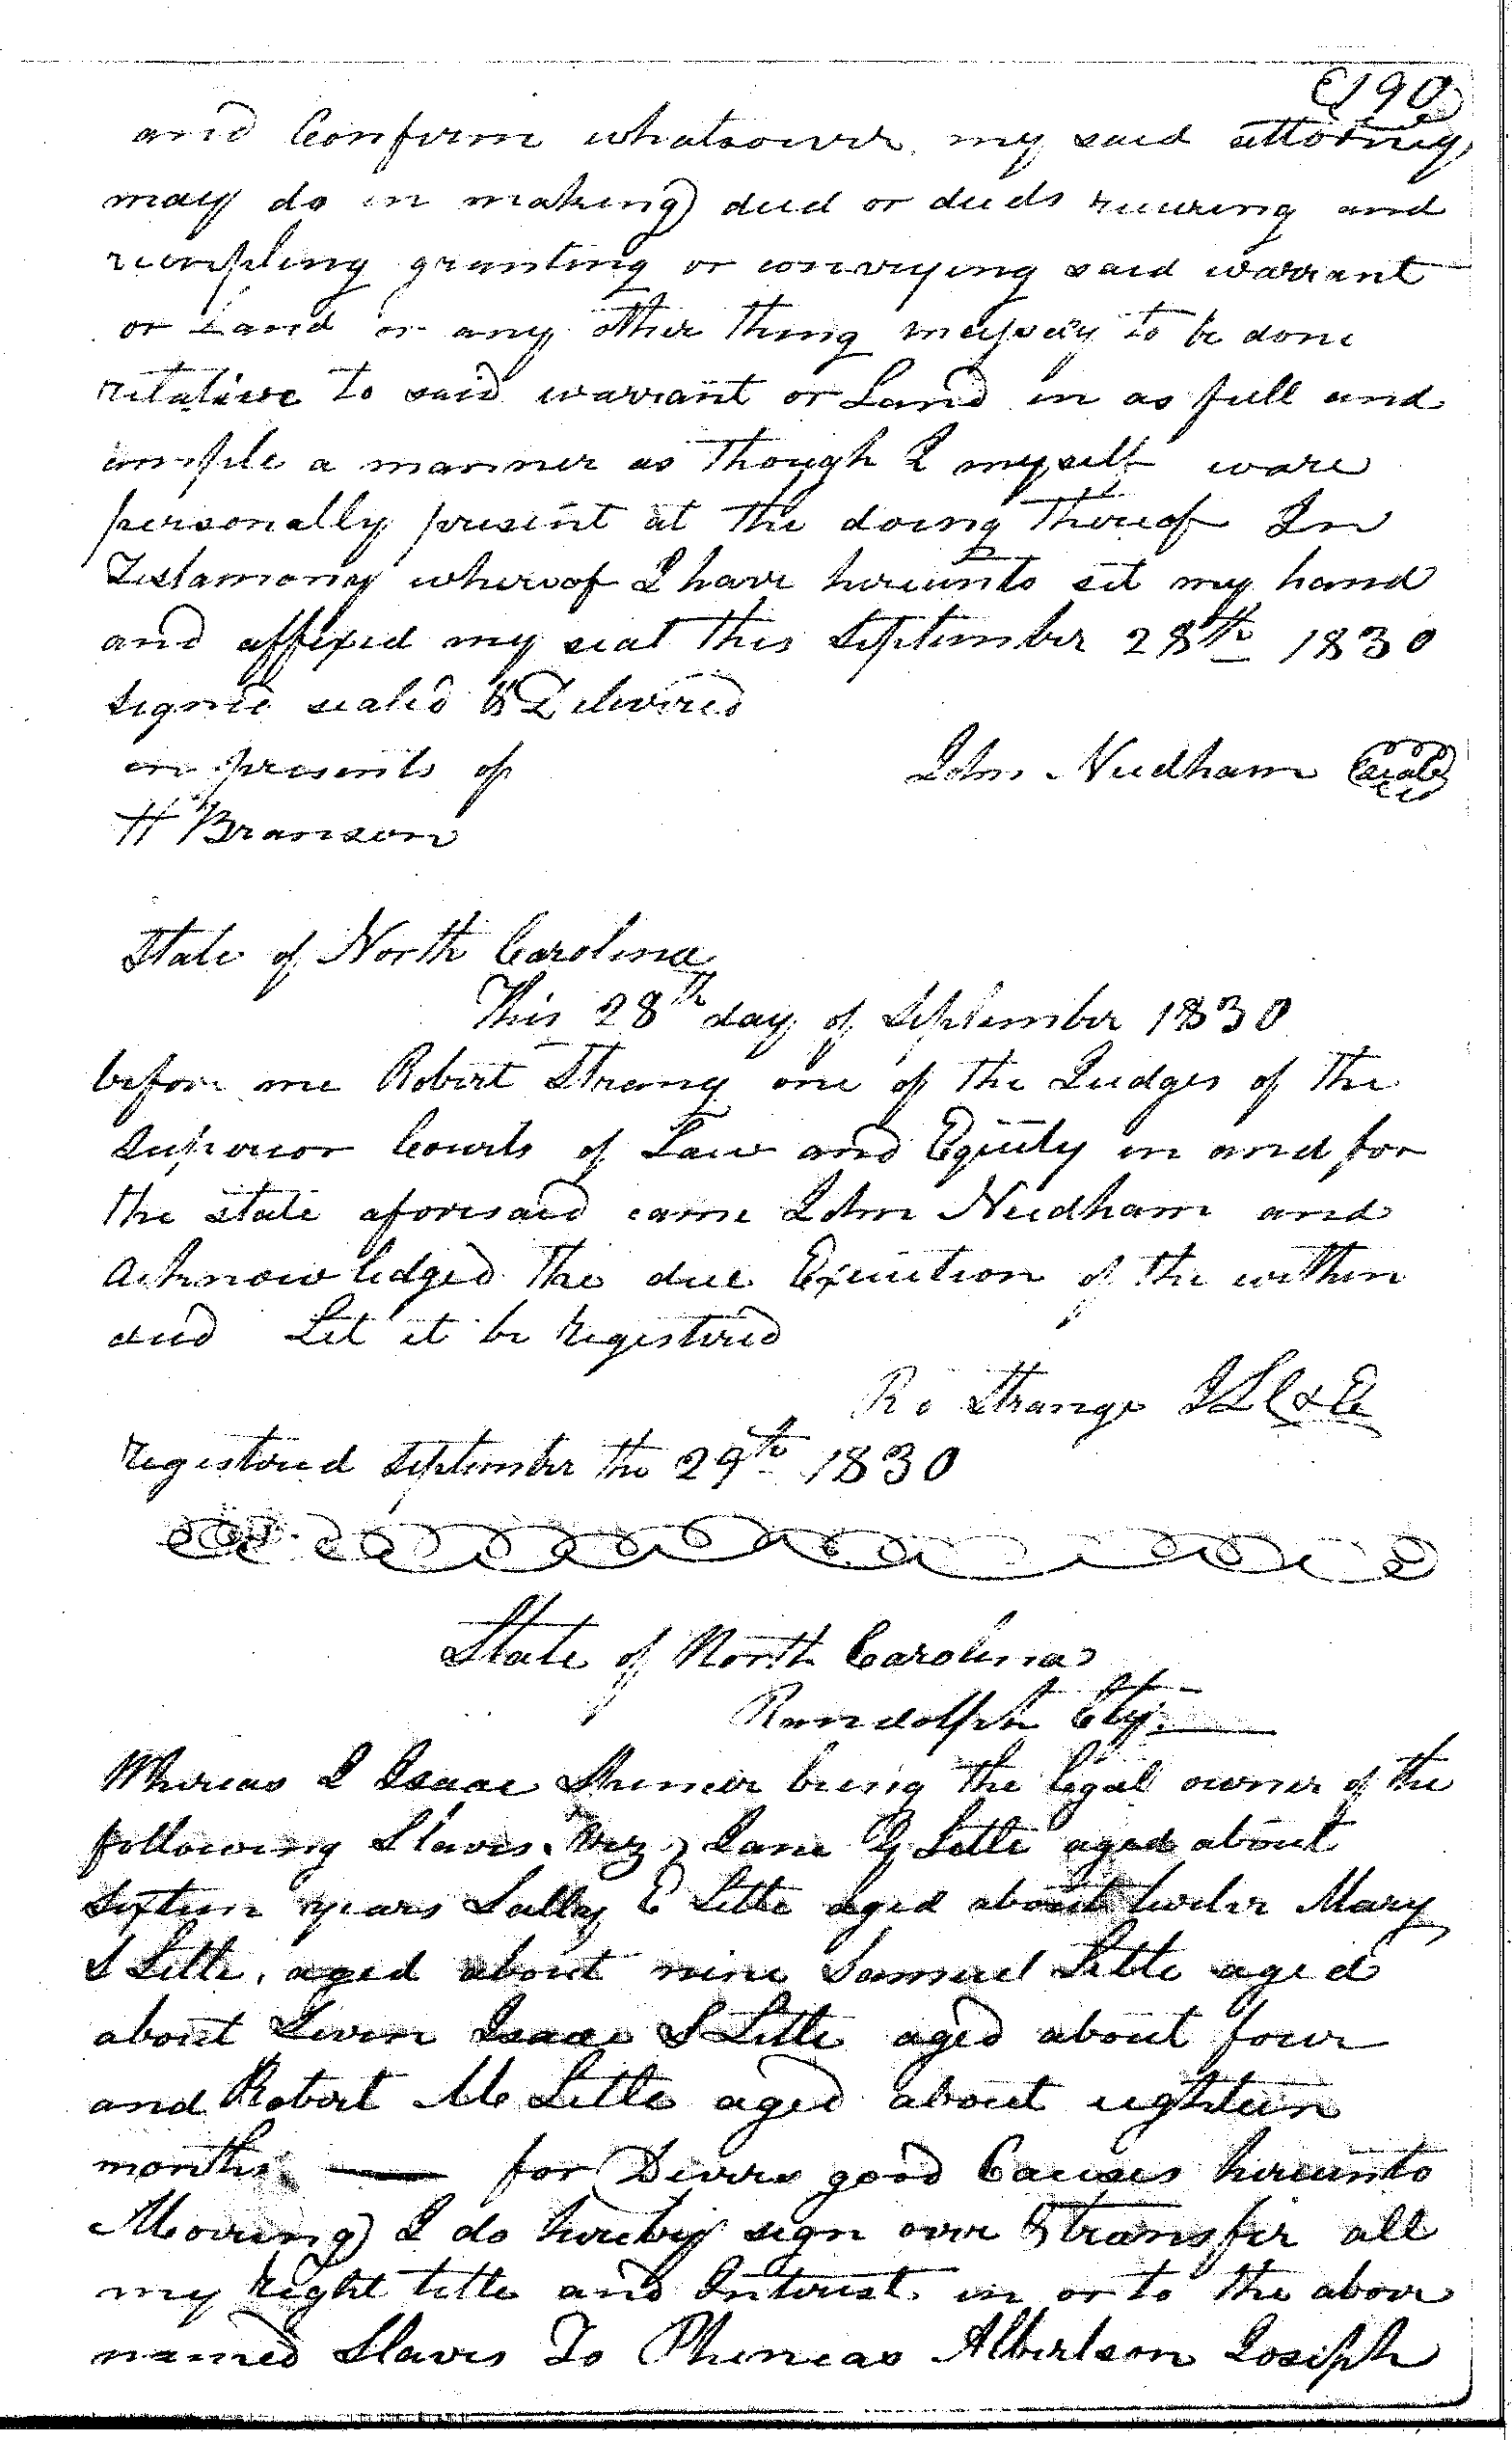 (190)
and Confirm whatsoever my said attorney
may do in making deed or deeds receiving and
receipting granting or conveying said warrant
or Land or any other thing to be done
relative to said warrant or Land in as full and
ample a manner as though I myself ware
personally present at the doing thereof In
Testamony whereof I have hereunto set my hand
and affixed my seal this September 28th 1830
signed sealed & Delivered
in presents of John Needham (seal)
H Branson
State of North Carolina
This 28th day of September 1830
before me Robert Strang one of the Judges of the
Superior Courts of Law and Equity in and for
the state aforesaid came John Needham and
acknowledged the due Execution of the within
deed Let it be registered
Ro Strange J L C & E
registered September the 29th 1830
State of North Carolina
Randolph Cty.
Whereas I Isaac being the legal owner of the
following Slaves. Viz, Jane Y Little aged about
years Sally E Little aged about twelve Mary
S Little, aged about nine Samuel Little aged
about Seven Isaac S Little aged about four
and Robert Mc Little aged about eighteen
months for Divers good Causes hereunto
Moving I do hereby sign over & transfer all
my right title and Interest in or to the above
named Slaves To Phineas Albertson Joseph